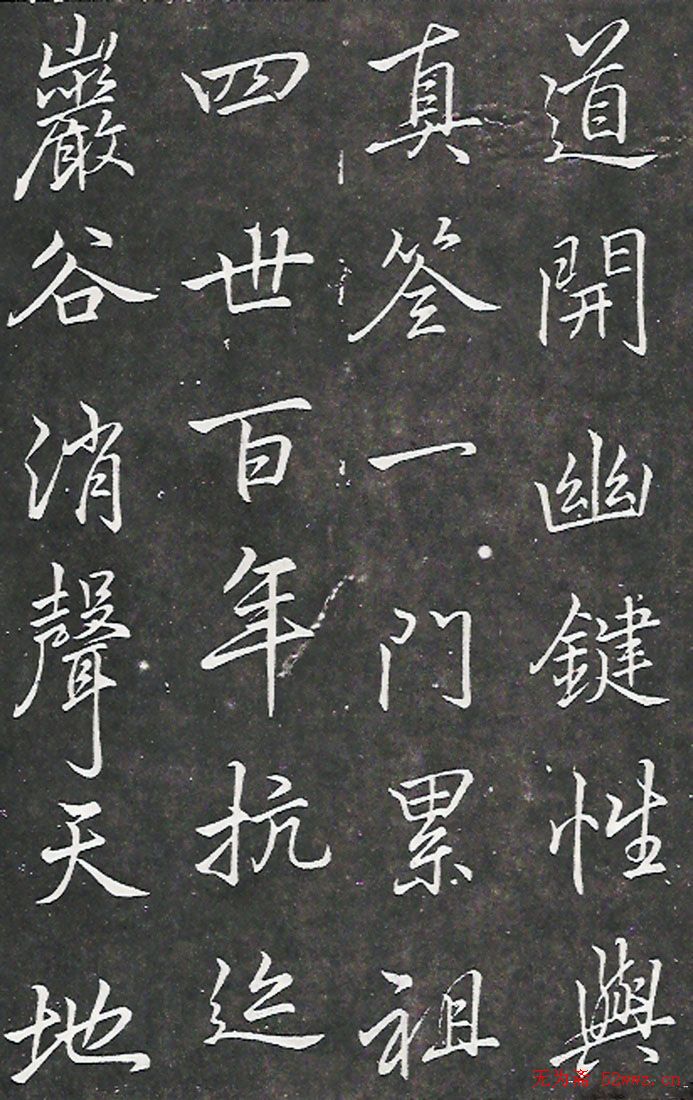 道開幽鍵性與
真筌一門累祖
四世百年抗迹
巖谷消聲天地
无为斋 52wwz.cn